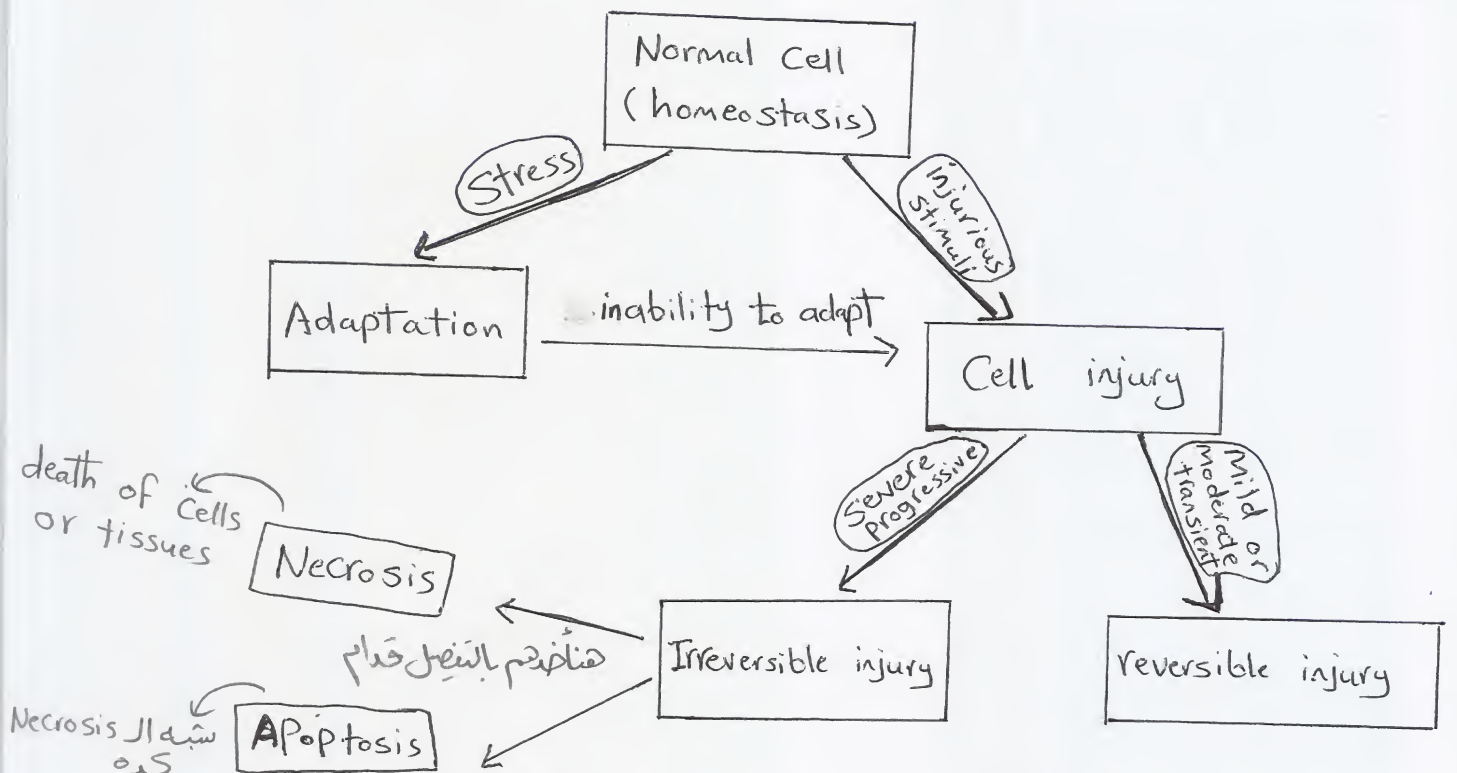 Normal Cell
(homeostasis)
Stress
Injurious
stimuli
Adaptation
inability to adapt
Cell injury
Severe
progressive
Mild or
Moderate
transient
death of Cells
or tissues
Necrosis
هنأخدهم بالتفصيل قدام
Irreversible injury
reversible injury
Apoptosis
شبه ال Necrosis
كده